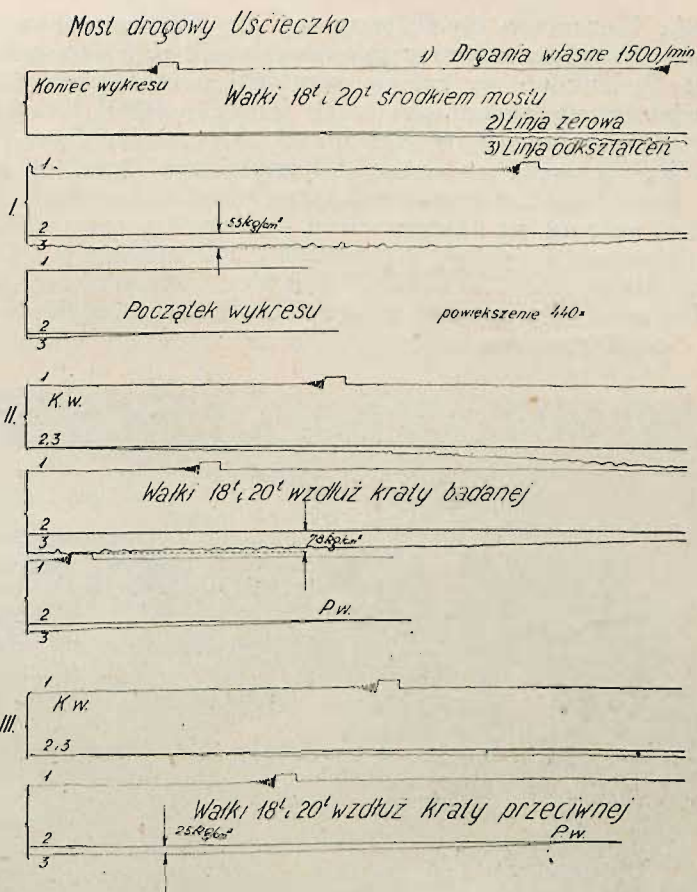 Most drogowy Uścieczko
1) Drgania własne 1500/min
Koniec wykresu
Wałki 18ᵗ i 20ᵗ środkiem mostu
2) Linja zerowa
3) Linja odkształceń
I.
1
2
3
55kg/cm²
1
Początek wykresu
powiększenie 440×
2
3
II.
1
K.w.
2,3
1
Wałki 18ᵗ i 20ᵗ wzdłuż kraty badanej
2
3
78kg/cm²
1
P.w.
2
3
III.
1
K.w.
2,3
1
Wałki 18ᵗ i 20ᵗ wzdłuż kraty przeciwnej
25kg/cm²
P.w.
2
3